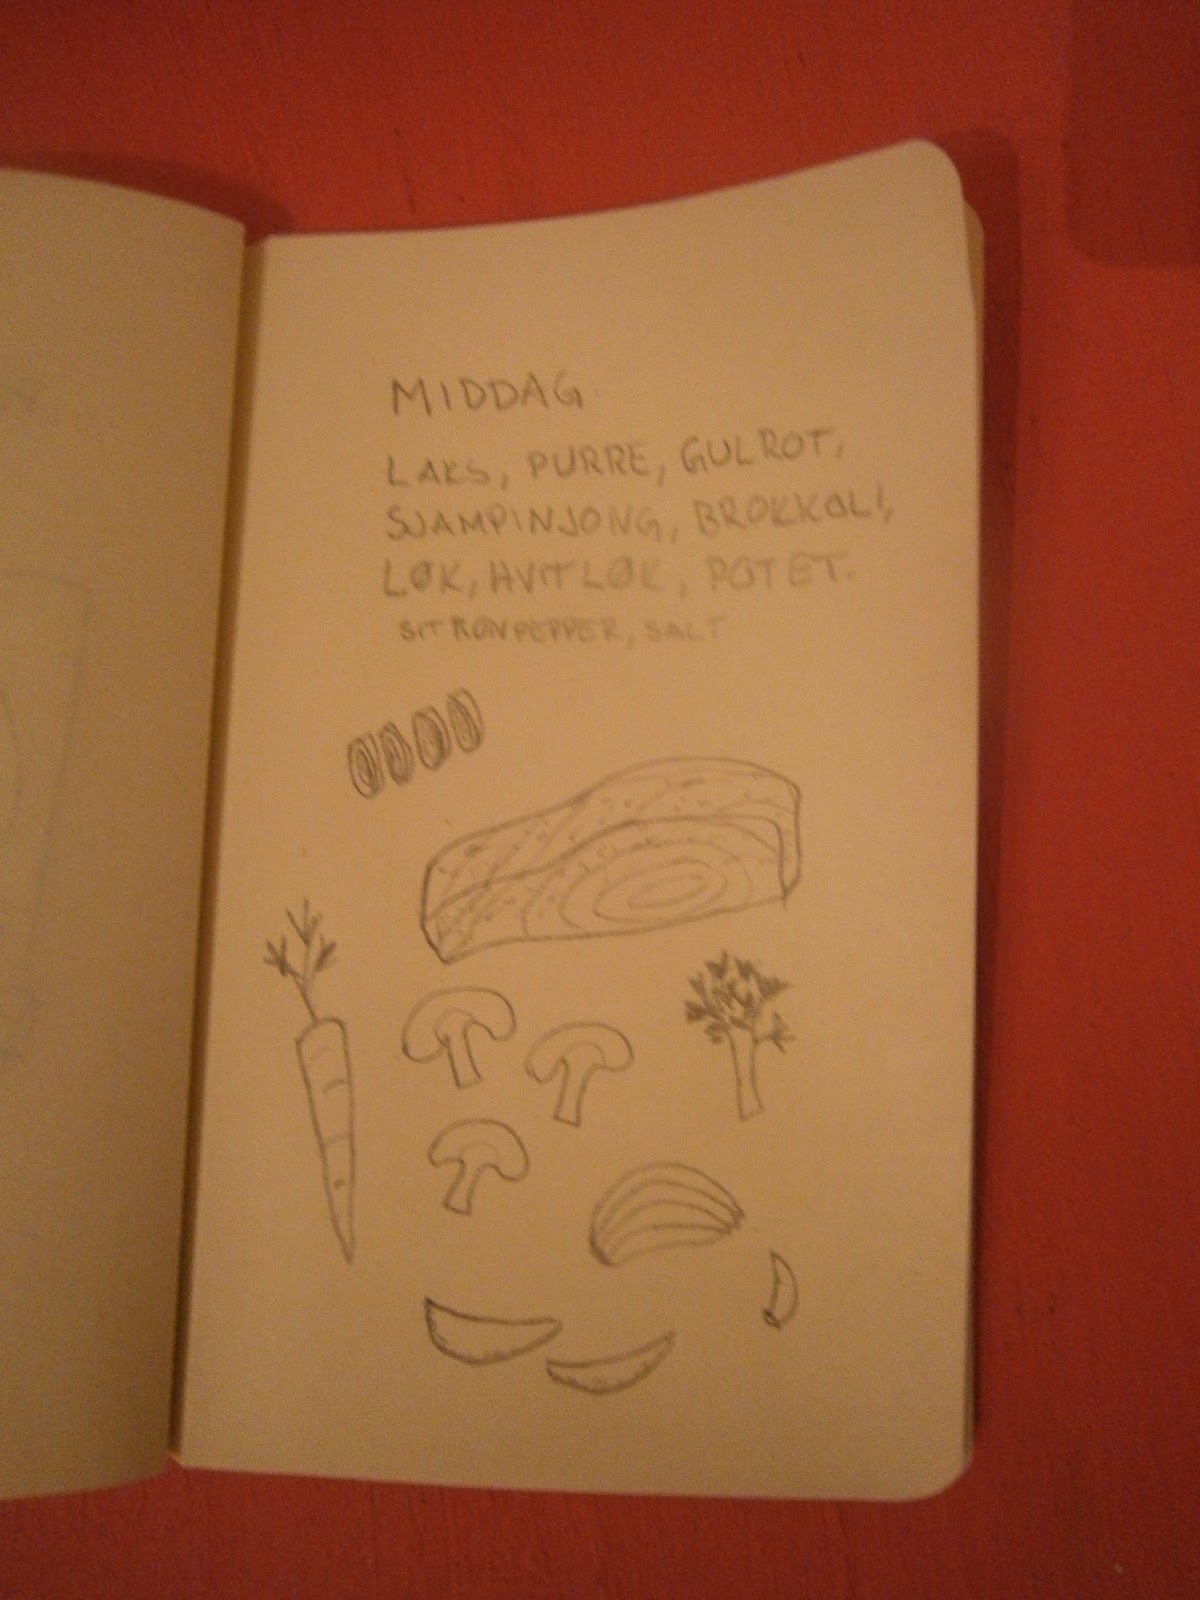 MIDDAG.
LAKS, PURRE, GULROT,
SJAMPINJONG, BROKKOLI,
LØK, HVITLØK, POTET.
SITRONPEPPER, SALT